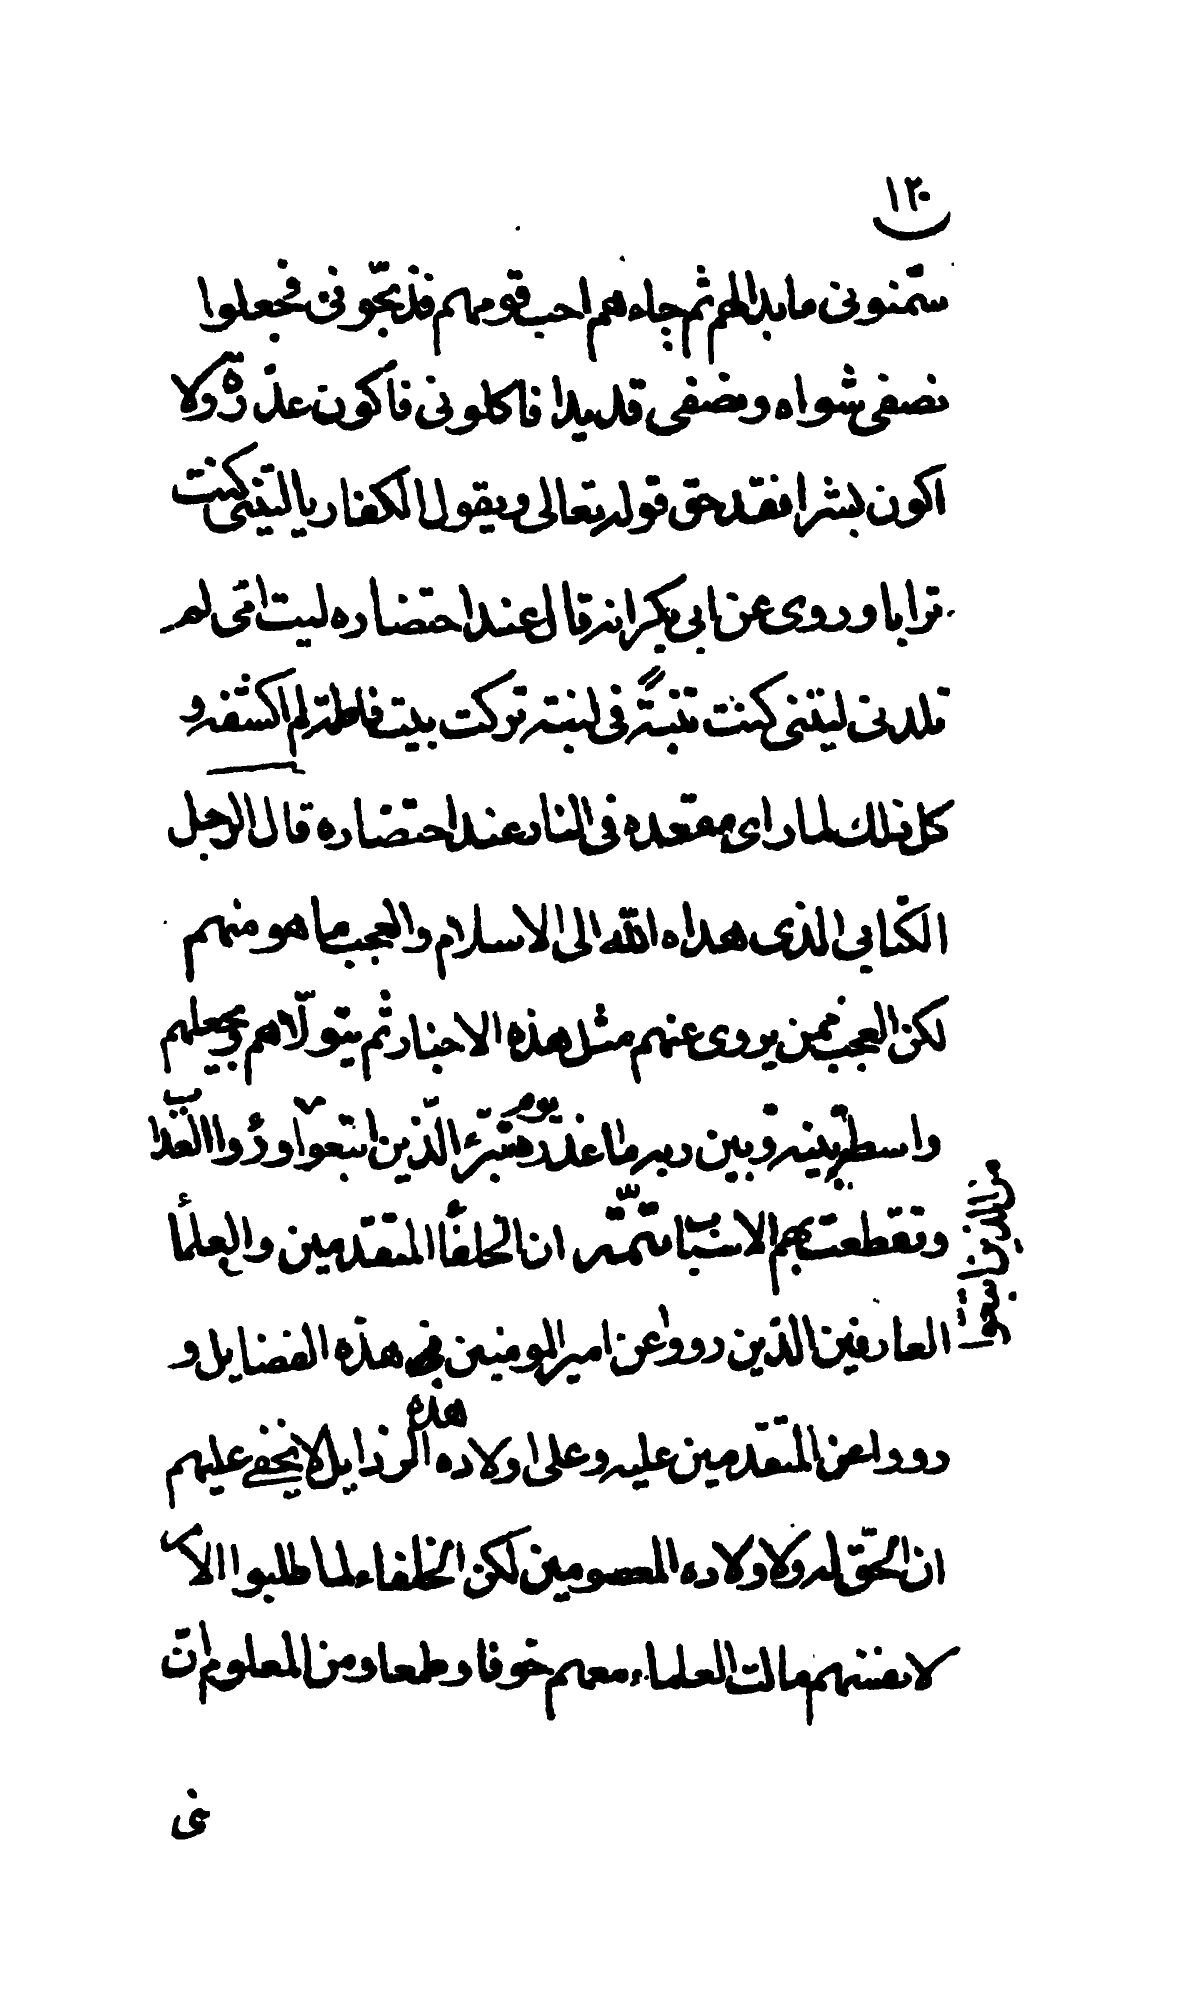 ١٢٠
سمّنونى ما بدا لهم ثم جاءهم احب قومهم فذبحّونى فجعلوا
نصفى شواه ونصفى قديدا فاكلونى فاكون عذرّة ولا
اكون بشرا فقد حق قوله تعالى ويقول الكفار يا ليتنى كنت
ترابا وروى عن ابى بكر انه قال عند احتضاره ليت امّى لم
تلدنى ليتنى كنت تبنةً فى لبنته تركت بيت فاطمة لم اكشفه و
كل ذلك لما راى مقعده فى النار عند احتضاره قال الرجل
الكتابى الذى هداه الله الى الاسلام والعجب ما هو منهم
لكن العجب فمن يروى عنهم مثل هذه الاخبار ثم يتولّاهم ويجعلهم
واسطة بينه وبين ربه ما عذره يوم تبرّء الّذين اتبعوا وراوا العذاب
من الذين اتبعوا
وتقطعت بهم الاسباب تتمّة ان الخلفأ المتقدمين والعلمأ
العارفين الذين رووا عن امير المومنين فى هذه الفضايل و
رووا عن المتقدمين عليه وعلى اولاده هذه الرذايل لا يخفى عليهم
ان الحق له ولاولاده المعصومين لكن الخلفاء لما طلبوا الامر
لانفسهم مالت العلماء معهم خوفا وطمعا ومن المعلوم انّ
نى